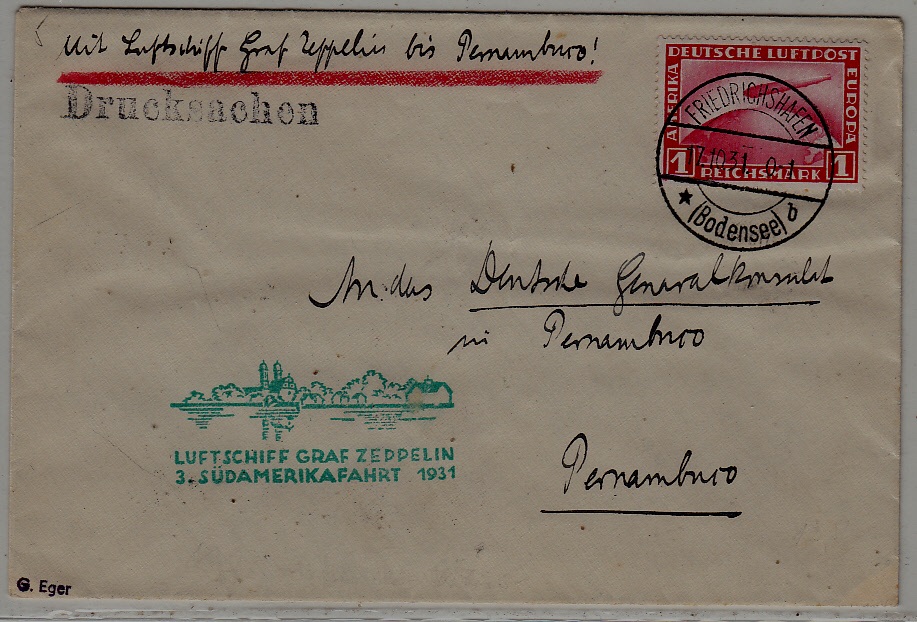 Mit Luftschiff Graf Zeppelin bis Pernambuco!
Drucksachen
DEUTSCHE LUFTPOST
AMERIKA
EUROPA
1 REICHSMARK 1
FRIEDRICHSHAFEN
17.10.31
★ (Bodensee) b
An das Deutsche Generalkonsulat
in Pernambuco
Pernambuco
LUFTSCHIFF GRAF ZEPPELIN
3. SÜDAMERIKAFAHRT 1931
G. Eger